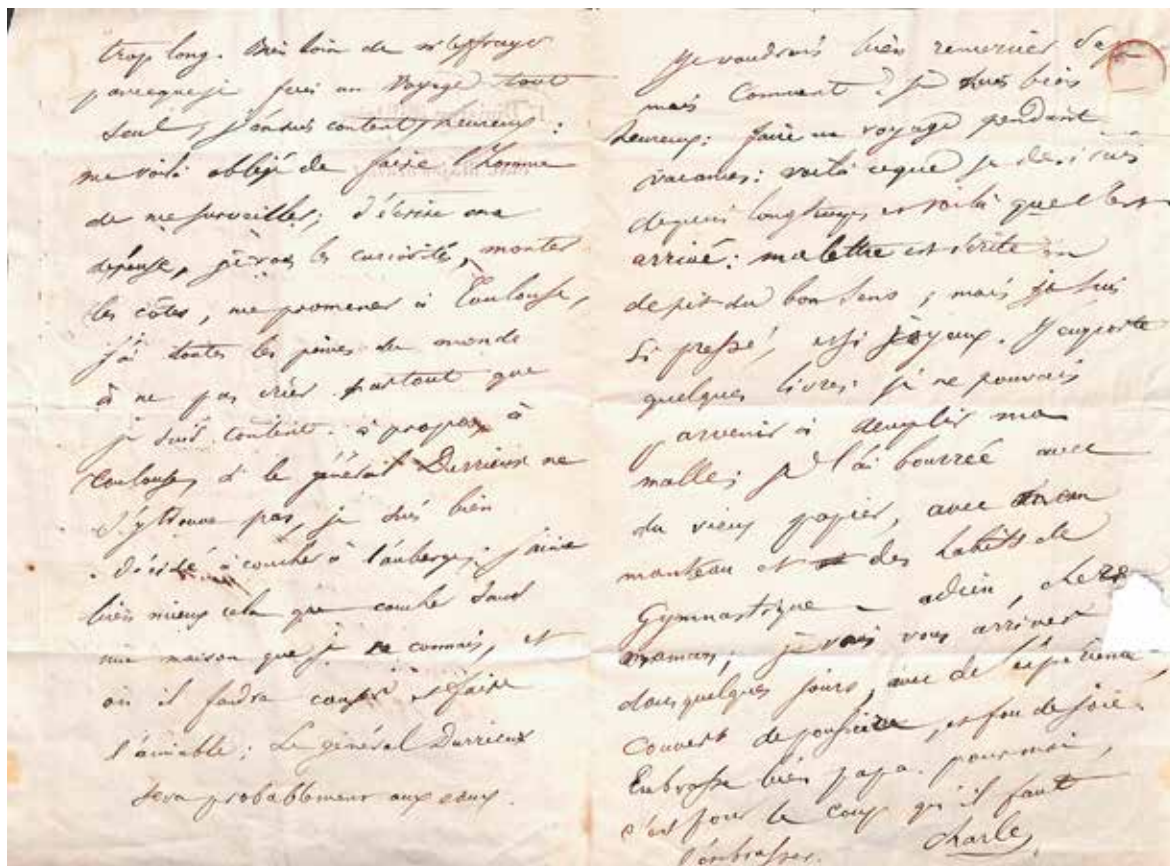 trop long. Bien loin de m'effrayer
parceque je fais un voyage tout
seul, j'en suis content, heureux :
me voilà obligé de faire l'homme
de me surveiller, d'écrire ma
dépense, je vois les curiosités, monter
les côtes, me promener à Toulouse,
j'ai toutes les peines du monde
à ne pas crier partout que
je suis content. à propos à
Toulouse, si le général Durrieux ne
s'y trouve pas, je suis bien
décidé à coucher à l'auberge. j'aime
bien mieux cela que coucher dans
une maison que je connais, et
où il faudra causer et faire
l'aimable ; Le général Durrieux
sera probablement aux eaux.
Je voudrais bien remercier Papa
mais Comment ? Je suis bien
heureux : faire un voyage pendant
vacances : voilà ceque je desirais
depuis longtemps, et voilà que c'est
arrivé : ma lettre est écrite en
depit du bon sens ; mais je suis
si pressé, et si joyeux. J'emporte
quelques livres : je ne pouvais
parvenir à remplir ma
malle ; je l'ai bourrée avec
du vieux papier, avec mon
manteau et des habits de
Gymnastique – adieu, chère
maman ; je vais vous arriver
dans quelques jours, avec de l'expérience,
Couvert de poussière, et fou de joie.
Embrasse bien papa pour moi,
c'est pour le coup qu'il faut
l'embrasser.
Charles